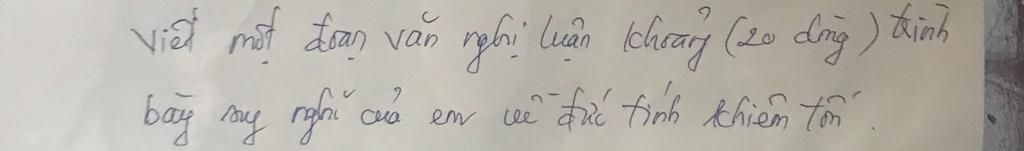 Viết một đoạn văn nghị luận khoảng (20 dòng) trình
bày suy nghĩ của em về đức tính khiêm tốn.